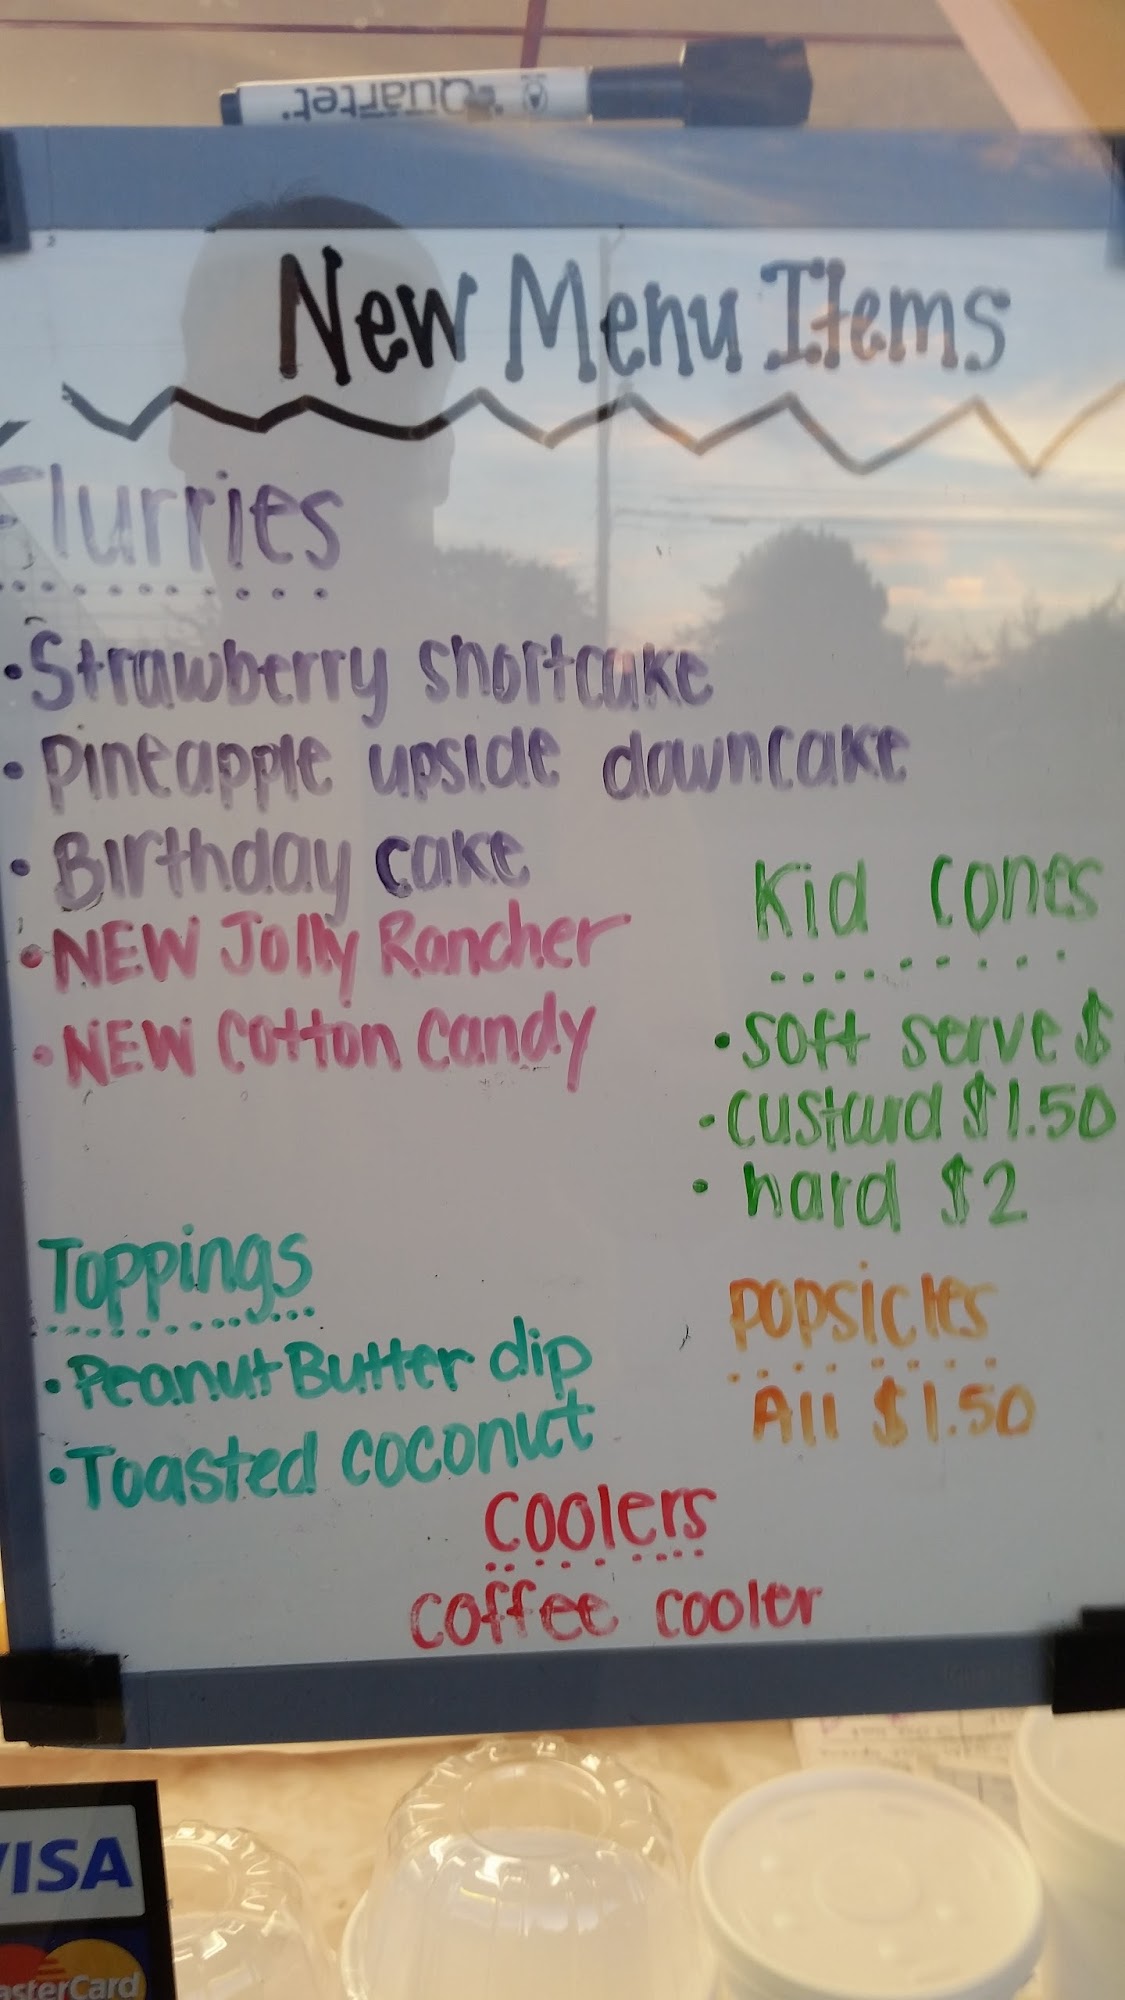 Quartet
New Menu Items
Flurries
• Strawberry shortcake
• Pineapple upside downcake
• Birthday cake
• NEW Jolly Rancher
• NEW Cotton Candy
Kid cones
• soft serve $
• custard $1.50
• hard $2
Toppings
• Peanut Butter dip
• Toasted coconut
popsicles
All $1.50
coolers
coffee cooler
VISA
asterCard